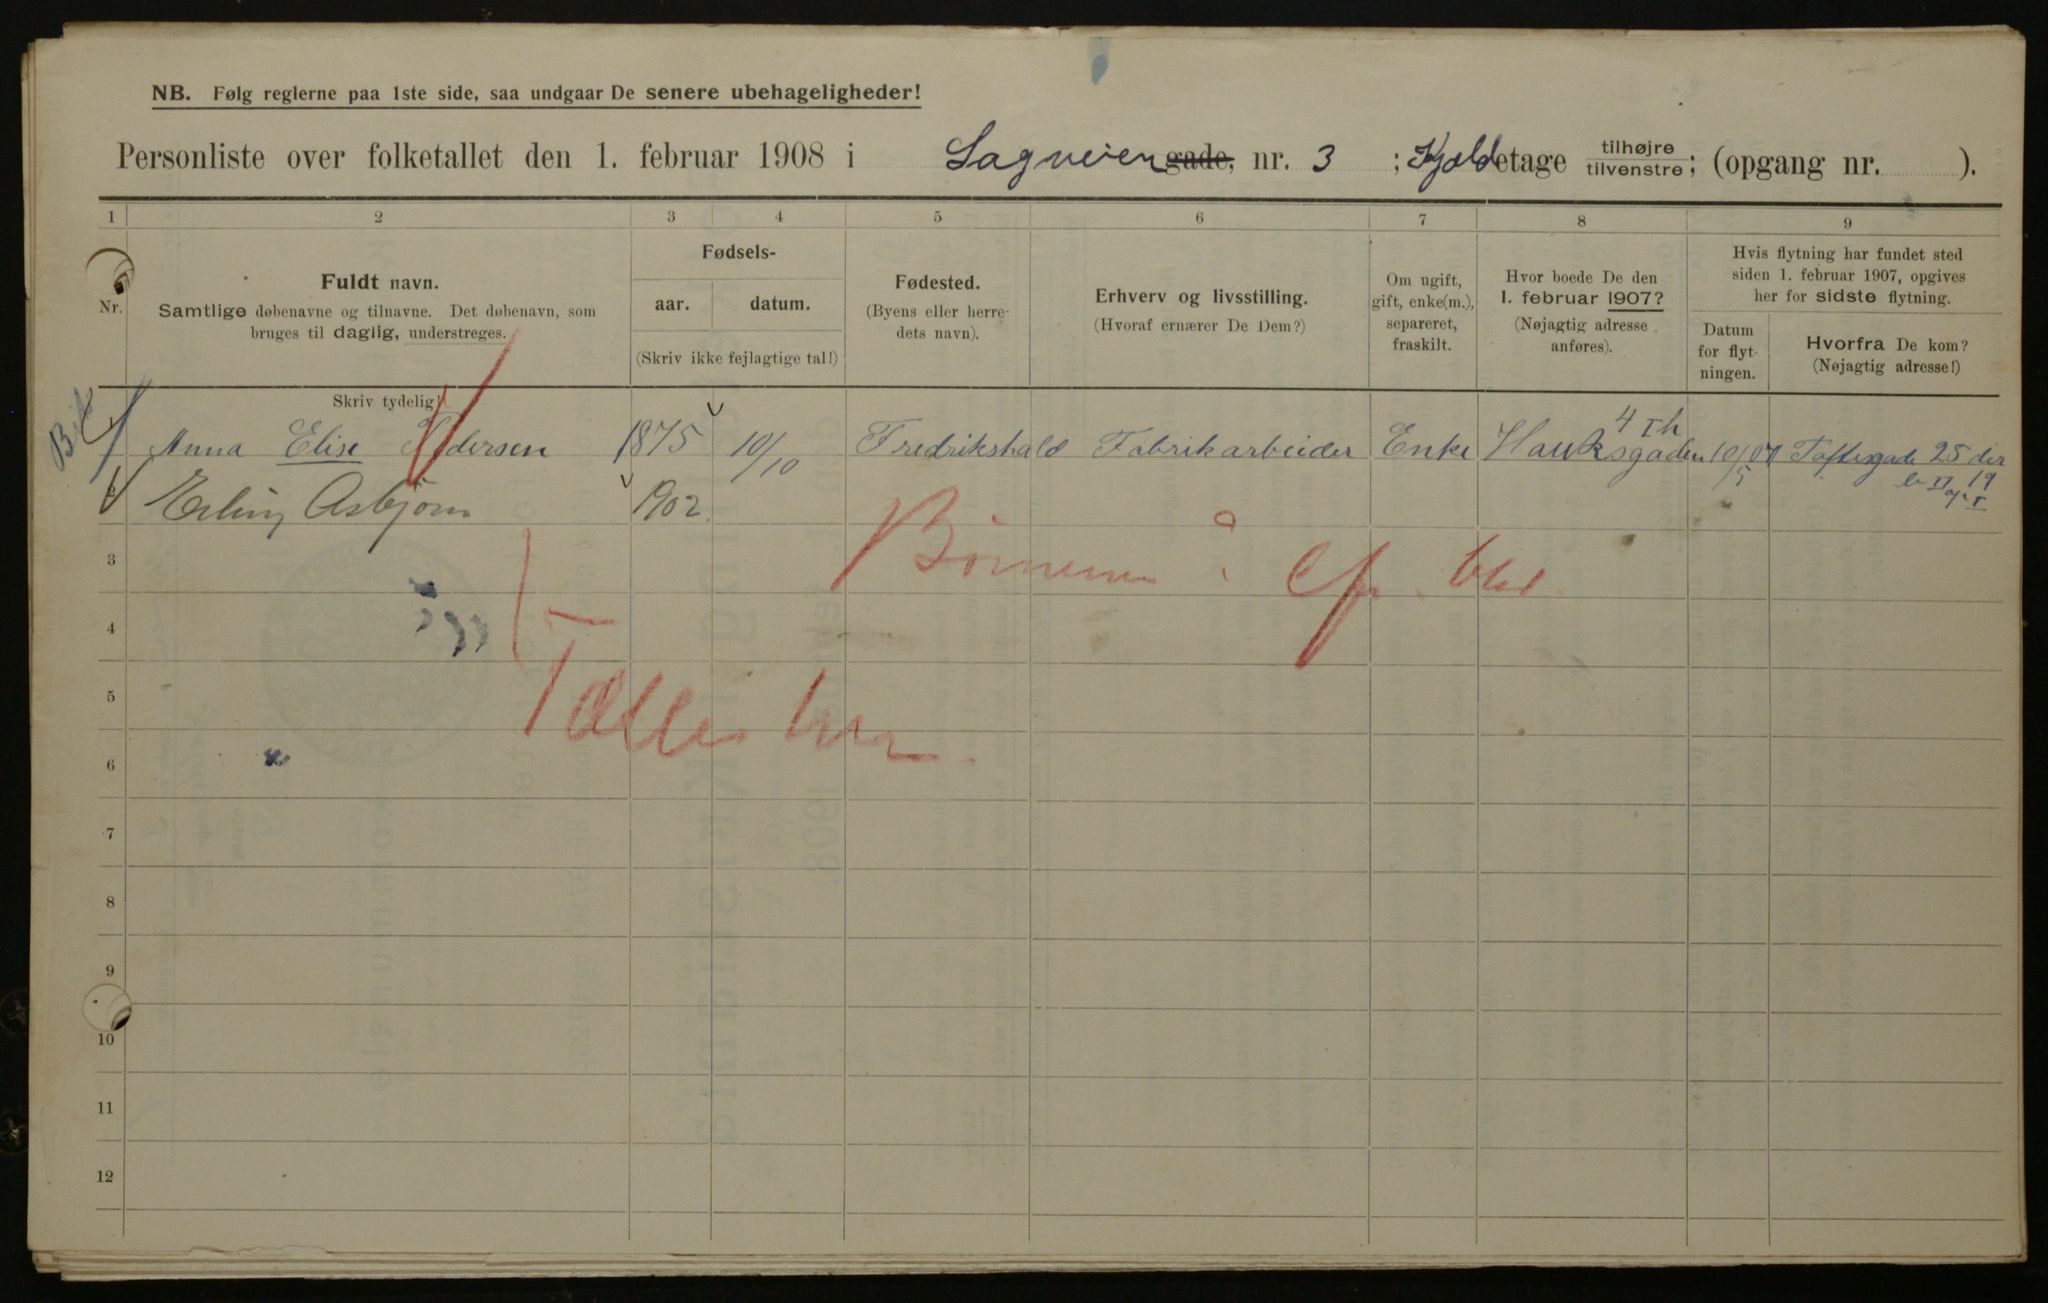 NB. Følg reglerne paa 1ste side, saa undgaar De senere ubehageligheder!
Personliste over folketallet den 1. februar 1908 i Sagveien gade, nr. 3 ; Kjeld etage tilhøjre tilvenstre; (opgang nr. ).
1 2 3 4 5 6 7 8 9
Nr.
Fuldt navn.
Samtlige døbenavne og tilnavne. Det døbenavn, som
bruges til daglig, understreges.
Skriv tydelig!
Fødsels-
aar. datum.
(Skriv ikke fejlagtige tal!)
Fødested.
(Byens eller herre-
dets navn).
Erhverv og livsstilling.
(Hvoraf ernærer De Dem?)
Om ugift,
gift, enke(m.),
separeret,
fraskilt.
Hvor boede De den
1. februar 1907?
(Nøjagtig adresse
anføres).
Hvis flytning har fundet sted
siden 1. februar 1907, opgives
her for sidste flytning.
Datum
for flyt-
ningen.
Hvorfra De kom?
(Nøjagtig adresse!)
Anna Elise Pedersen 1875 10/10 Fredrikshald Fabrikarbeider Enke Hauksgaden 4 I h 10/5 07 Toftesgade 25
2 Erling Asbjørn 1902
3
4
5
6
7
8
9
10
11
12